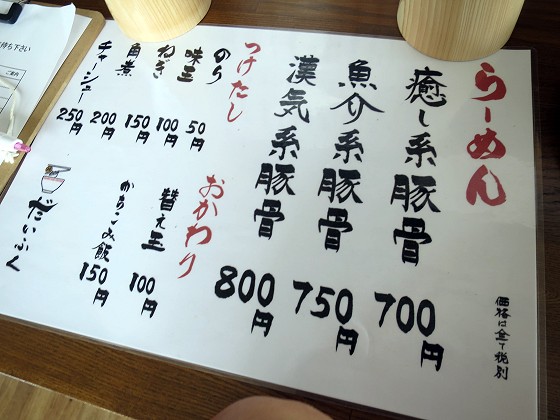 らーめん
癒し系豚骨 700円
魚介系豚骨 750円
漢気系豚骨 800円
つけたし
のり 50円
味玉 100円
ねぎ 150円
角煮 200円
チャーシュー 250円
おかわり
替え玉 100円
かちこみ飯 150円
だいふく
価格は全て税別
待ち下さい
ご案内